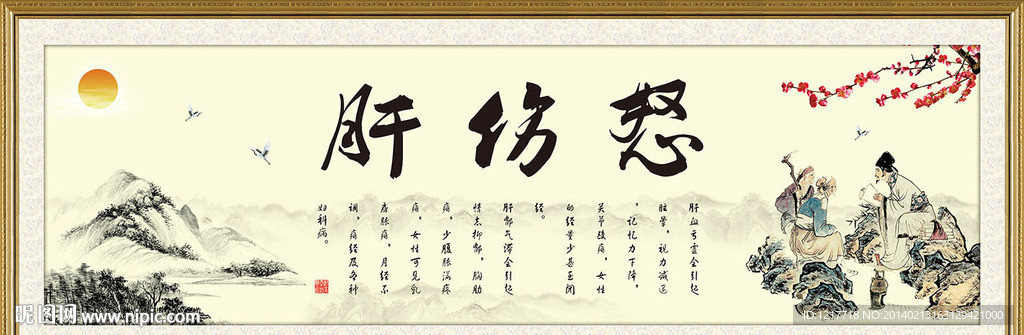 怒伤肝
肝血亏虚会引起
眩晕,视力减退
,记忆力下降,
关节酸痛,女性
的经量少甚至闭
经。
肝郁气滞会引起
情志抑郁,胸肋
痛,少腹胀满疼
痛,女性可见乳
房胀痛,月经不
调,痛经及各种
妇科病。
昵图网 www.nipic.com
ID:1217718 NO:20140213163129421000